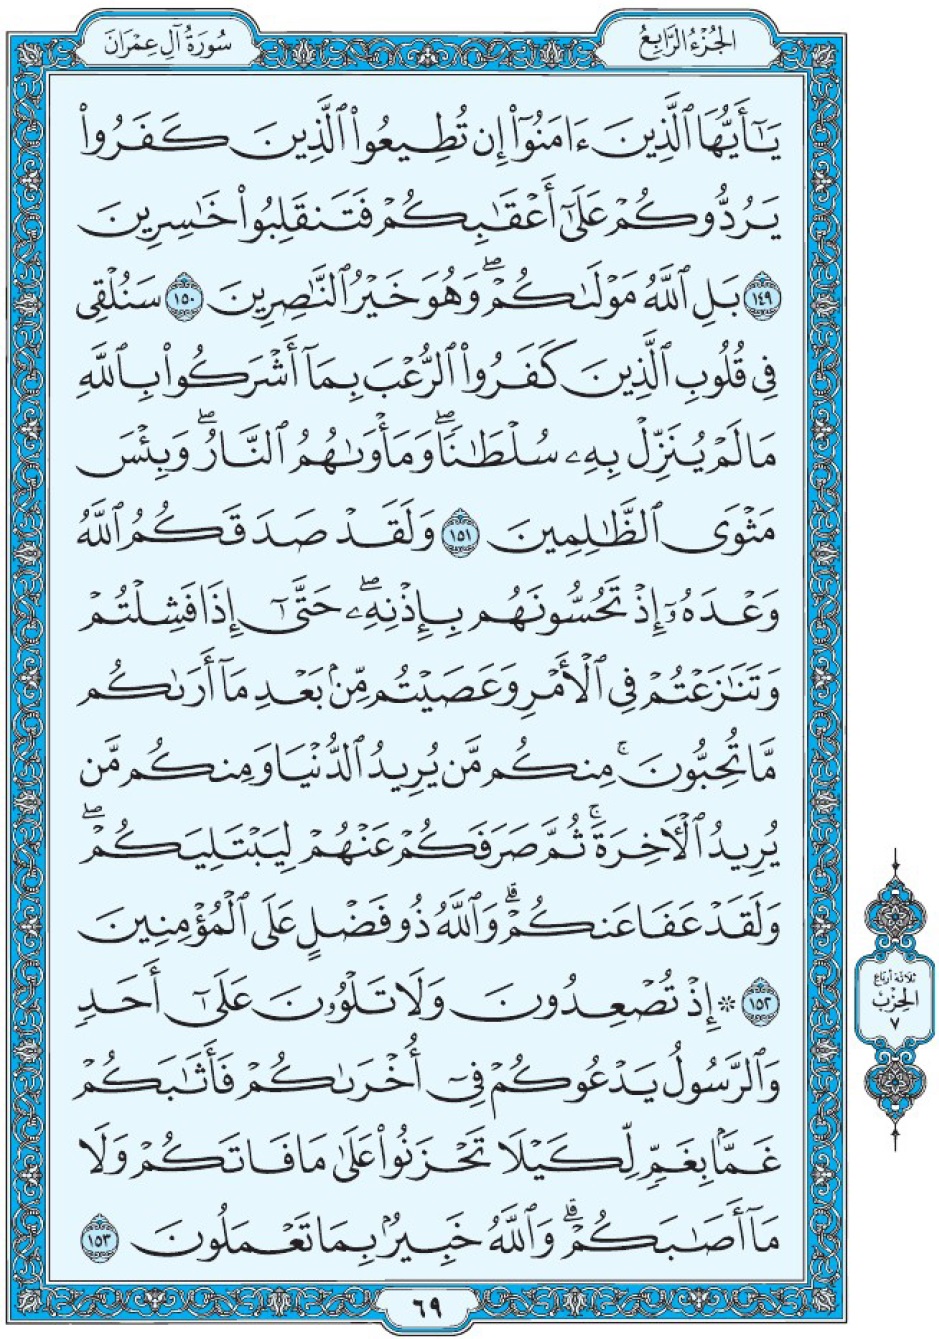 الجُزْءُ الرَّابِعُ
سُورَةُ آلِ عِمْرَانَ
يَٰٓأَيُّهَا ٱلَّذِينَ ءَامَنُوٓا۟ إِن تُطِيعُوا۟ ٱلَّذِينَ كَفَرُوا۟
يَرُدُّوكُمْ عَلَىٰٓ أَعْقَٰبِكُمْ فَتَنقَلِبُوا۟ خَٰسِرِينَ
١٤٩ بَلِ ٱللَّهُ مَوْلَىٰكُمْ ۖ وَهُوَ خَيْرُ ٱلنَّٰصِرِينَ ١٥٠ سَنُلْقِى
فِى قُلُوبِ ٱلَّذِينَ كَفَرُوا۟ ٱلرُّعْبَ بِمَآ أَشْرَكُوا۟ بِٱللَّهِ
مَا لَمْ يُنَزِّلْ بِهِۦ سُلْطَٰنًا ۖ وَمَأْوَىٰهُمُ ٱلنَّارُ ۖ وَبِئْسَ
مَثْوَى ٱلظَّٰلِمِينَ ١٥١ وَلَقَدْ صَدَقَكُمُ ٱللَّهُ
وَعْدَهُۥٓ إِذْ تَحُسُّونَهُم بِإِذْنِهِۦ ۖ حَتَّىٰٓ إِذَا فَشِلْتُمْ
وَتَنَٰزَعْتُمْ فِى ٱلْأَمْرِ وَعَصَيْتُم مِّنۢ بَعْدِ مَآ أَرَىٰكُم
مَّا تُحِبُّونَ ۚ مِنكُم مَّن يُرِيدُ ٱلدُّنْيَا وَمِنكُم مَّن
يُرِيدُ ٱلْءَاخِرَةَ ۚ ثُمَّ صَرَفَكُمْ عَنْهُمْ لِيَبْتَلِيَكُمْ ۖ
وَلَقَدْ عَفَا عَنكُمْ ۗ وَٱللَّهُ ذُو فَضْلٍ عَلَى ٱلْمُؤْمِنِينَ
١٥٢ ۞ إِذْ تُصْعِدُونَ وَلَا تَلْوُۥنَ عَلَىٰٓ أَحَدٍ
وَٱلرَّسُولُ يَدْعُوكُمْ فِىٓ أُخْرَىٰكُمْ فَأَثَٰبَكُمْ
غَمًّۢا بِغَمٍّ لِّكَيْلَا تَحْزَنُوا۟ عَلَىٰ مَا فَاتَكُمْ وَلَا
مَآ أَصَٰبَكُمْ ۗ وَٱللَّهُ خَبِيرٌۢ بِمَا تَعْمَلُونَ ١٥٣
ثلاثة أرباع
الحِزْب
٧
٦٩